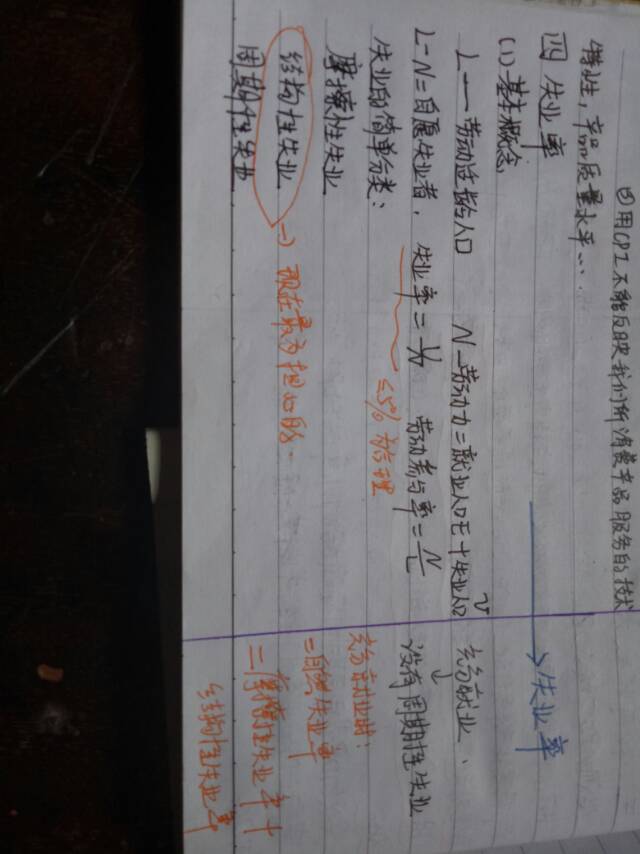 ④用CPI不能反映我们所消费产品服务的技术
特性,产品质量水平…
四 失业率
(1)基本概念
L——劳动适龄人口 N—劳动力=就业人口E+失业人口U
L-N=自愿失业者, 失业率=U/N 劳动参与率=N/L
≤5%为合理
失业的简单分类:
摩擦性失业
结构性失业 → 现在最为担心的.
周期性失业
→失业率
充分就业.
↓
没有周期性失业
充分就业时:
=自然失业率
=摩擦性失业率+
结构性失业率